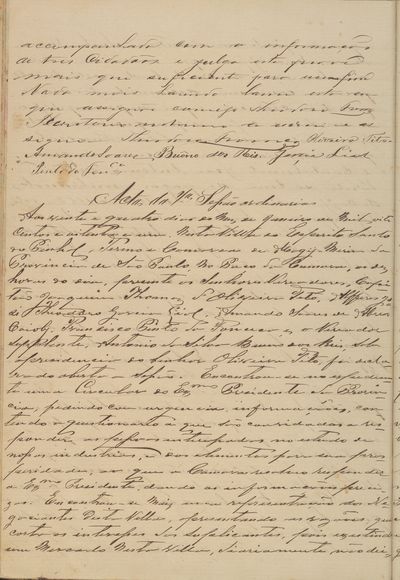 acompanhado com a informação
de tres Cidadãos e julga este
mais que suficiente para
Nada mais havendo lavro esta em
que assigno comigo Theodoro
Secretario
signa Theodoro Oliveira Tito
Amando Soares Bueno dos Reis Leal
Pinto da Fonseca
Acta da 7ª Sessão ordinaria
Aos vinte e quatro dias do Mez de Janeiro de Mil oito
Centos e oitenta e um, Nesta Villa do Espirito Santo
do Pinhal, Termo e Comarca de Mogy Mirim da
Provincia de São Paulo, No Paço da Camara, as dez
horas do dia, presente os Senhores Vereadores, Capi-
tão Joaquim Thomaz d'Oliveira Tito, Alferes
Theodoro Leal, Amando Soares de
Francisco Pinto da Fonseca e o Vereador
Supplente, Antonio da Silva Bueno dos Reis, sob
a presidencia do Senhor Oliveira Tito, foi decla-
rado aberta a Sessão. Encontrou-se no expedien-
te uma Circular do Exmo Presidente da Provin-
cia, pedindo com urgencia informações, con-
tendo o questionario a que são convidadas a res-
ponder as pessoas interessadas no estudo de
nossas industrias, e dos elementos para sua pros-
peridade, ao que a Camara resolveu responder
a Exmo Presidente dando as informações
Encontrou-se mais uma representação dos Ne-
gociantes desta Villa, apresentando as razões que
contra os interesses dos suplicantes, pois existindo
um Mercado Nesta Villa, diariamente